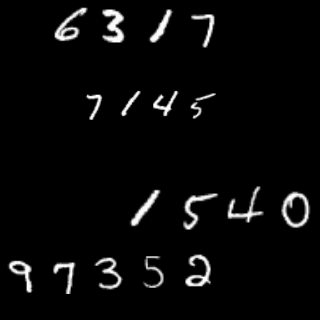 6317
7145
1540
97352